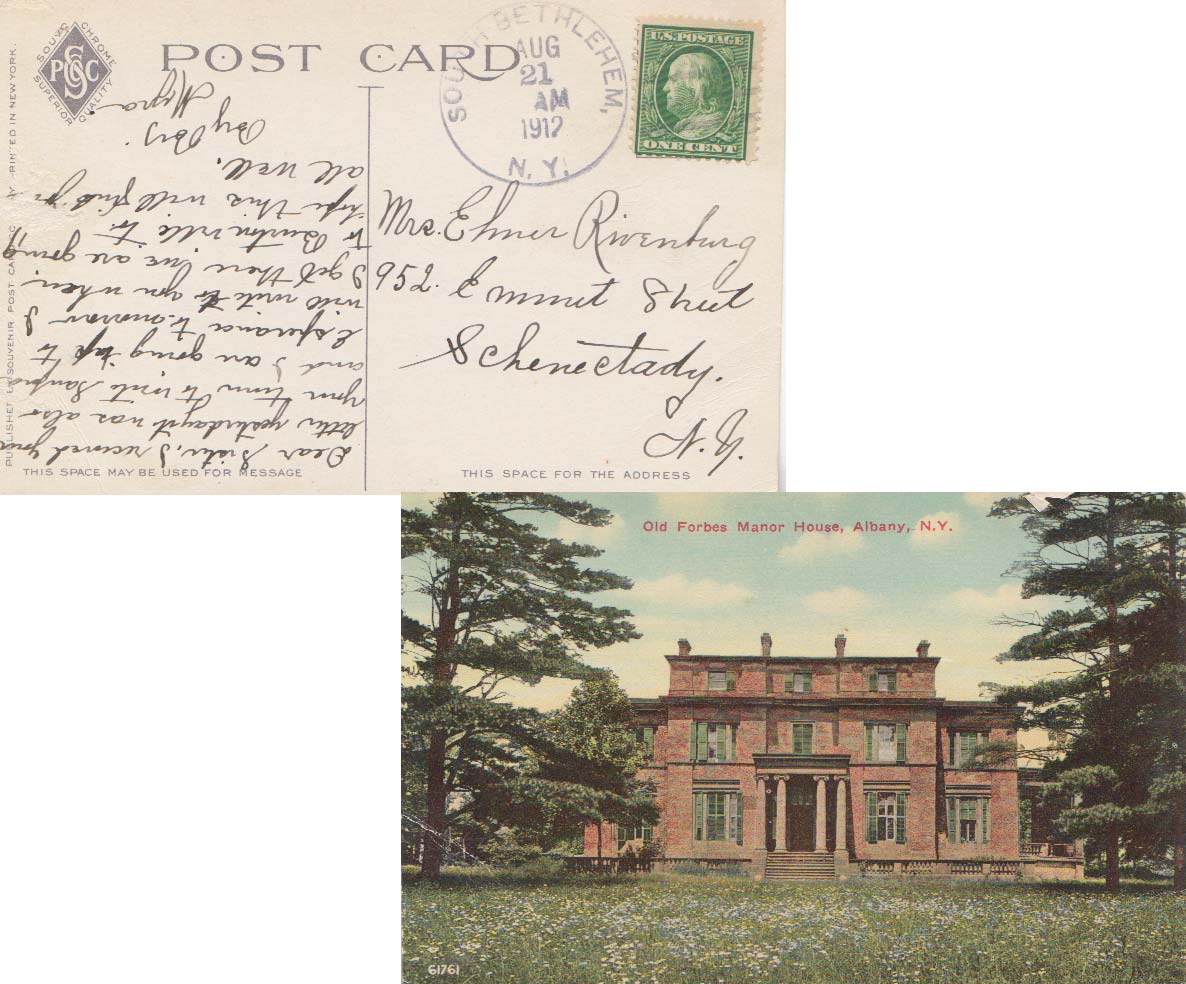 SOUV. CHROME
PSCC
SUPERIOR QUALITY
POST CARD
SOUTH BETHLEHEM,
AUG
21
AM
1912
N. Y.
U.S. POSTAGE
ONE CENT
Mrs. Elmer Rivenburg
952. Emmet Street
Schenectady.
N. Y.
Dear Sister, I received your
letter yesterday it was also
your turn to write Sanford
and I are going up to
Esperance to-morrow I
will write to you when
I get there we are going
to Burtonville to.
hope this will find you
all well.
By By
Myra
THIS SPACE MAY BE USED FOR MESSAGE
THIS SPACE FOR THE ADDRESS
SOUVENIR POST CARD PRINTED IN NEW YORK.
Old Forbes Manor House, Albany, N.Y.
61761